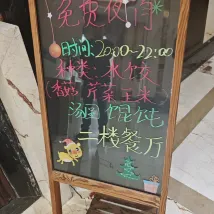 免费夜宵
时间:20:00~22:00
种类:水饺
香菇 芹菜 玉米
汤圆 馄饨
二楼餐厅